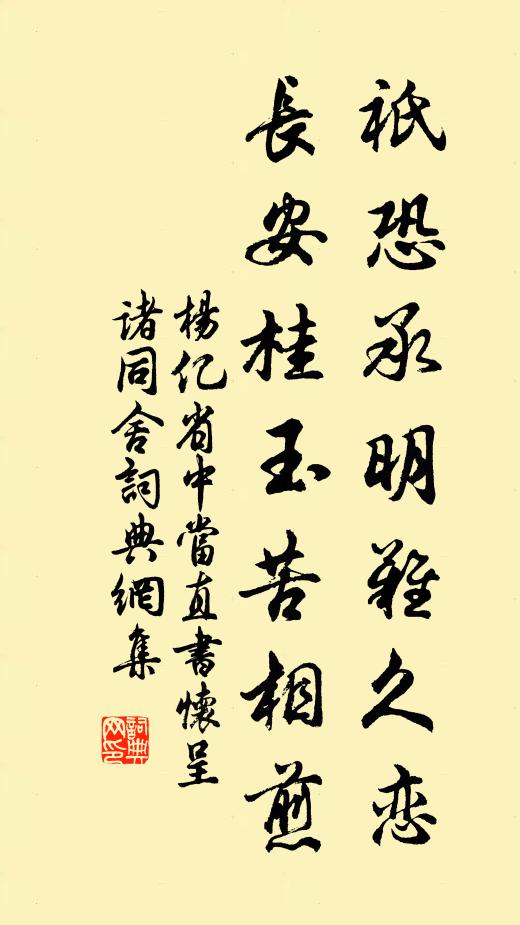 祇恐承明難久恋
長安桂玉苦相煎
楊亿省中當直書懷呈
诸同舍詞典網集
詞典
网印